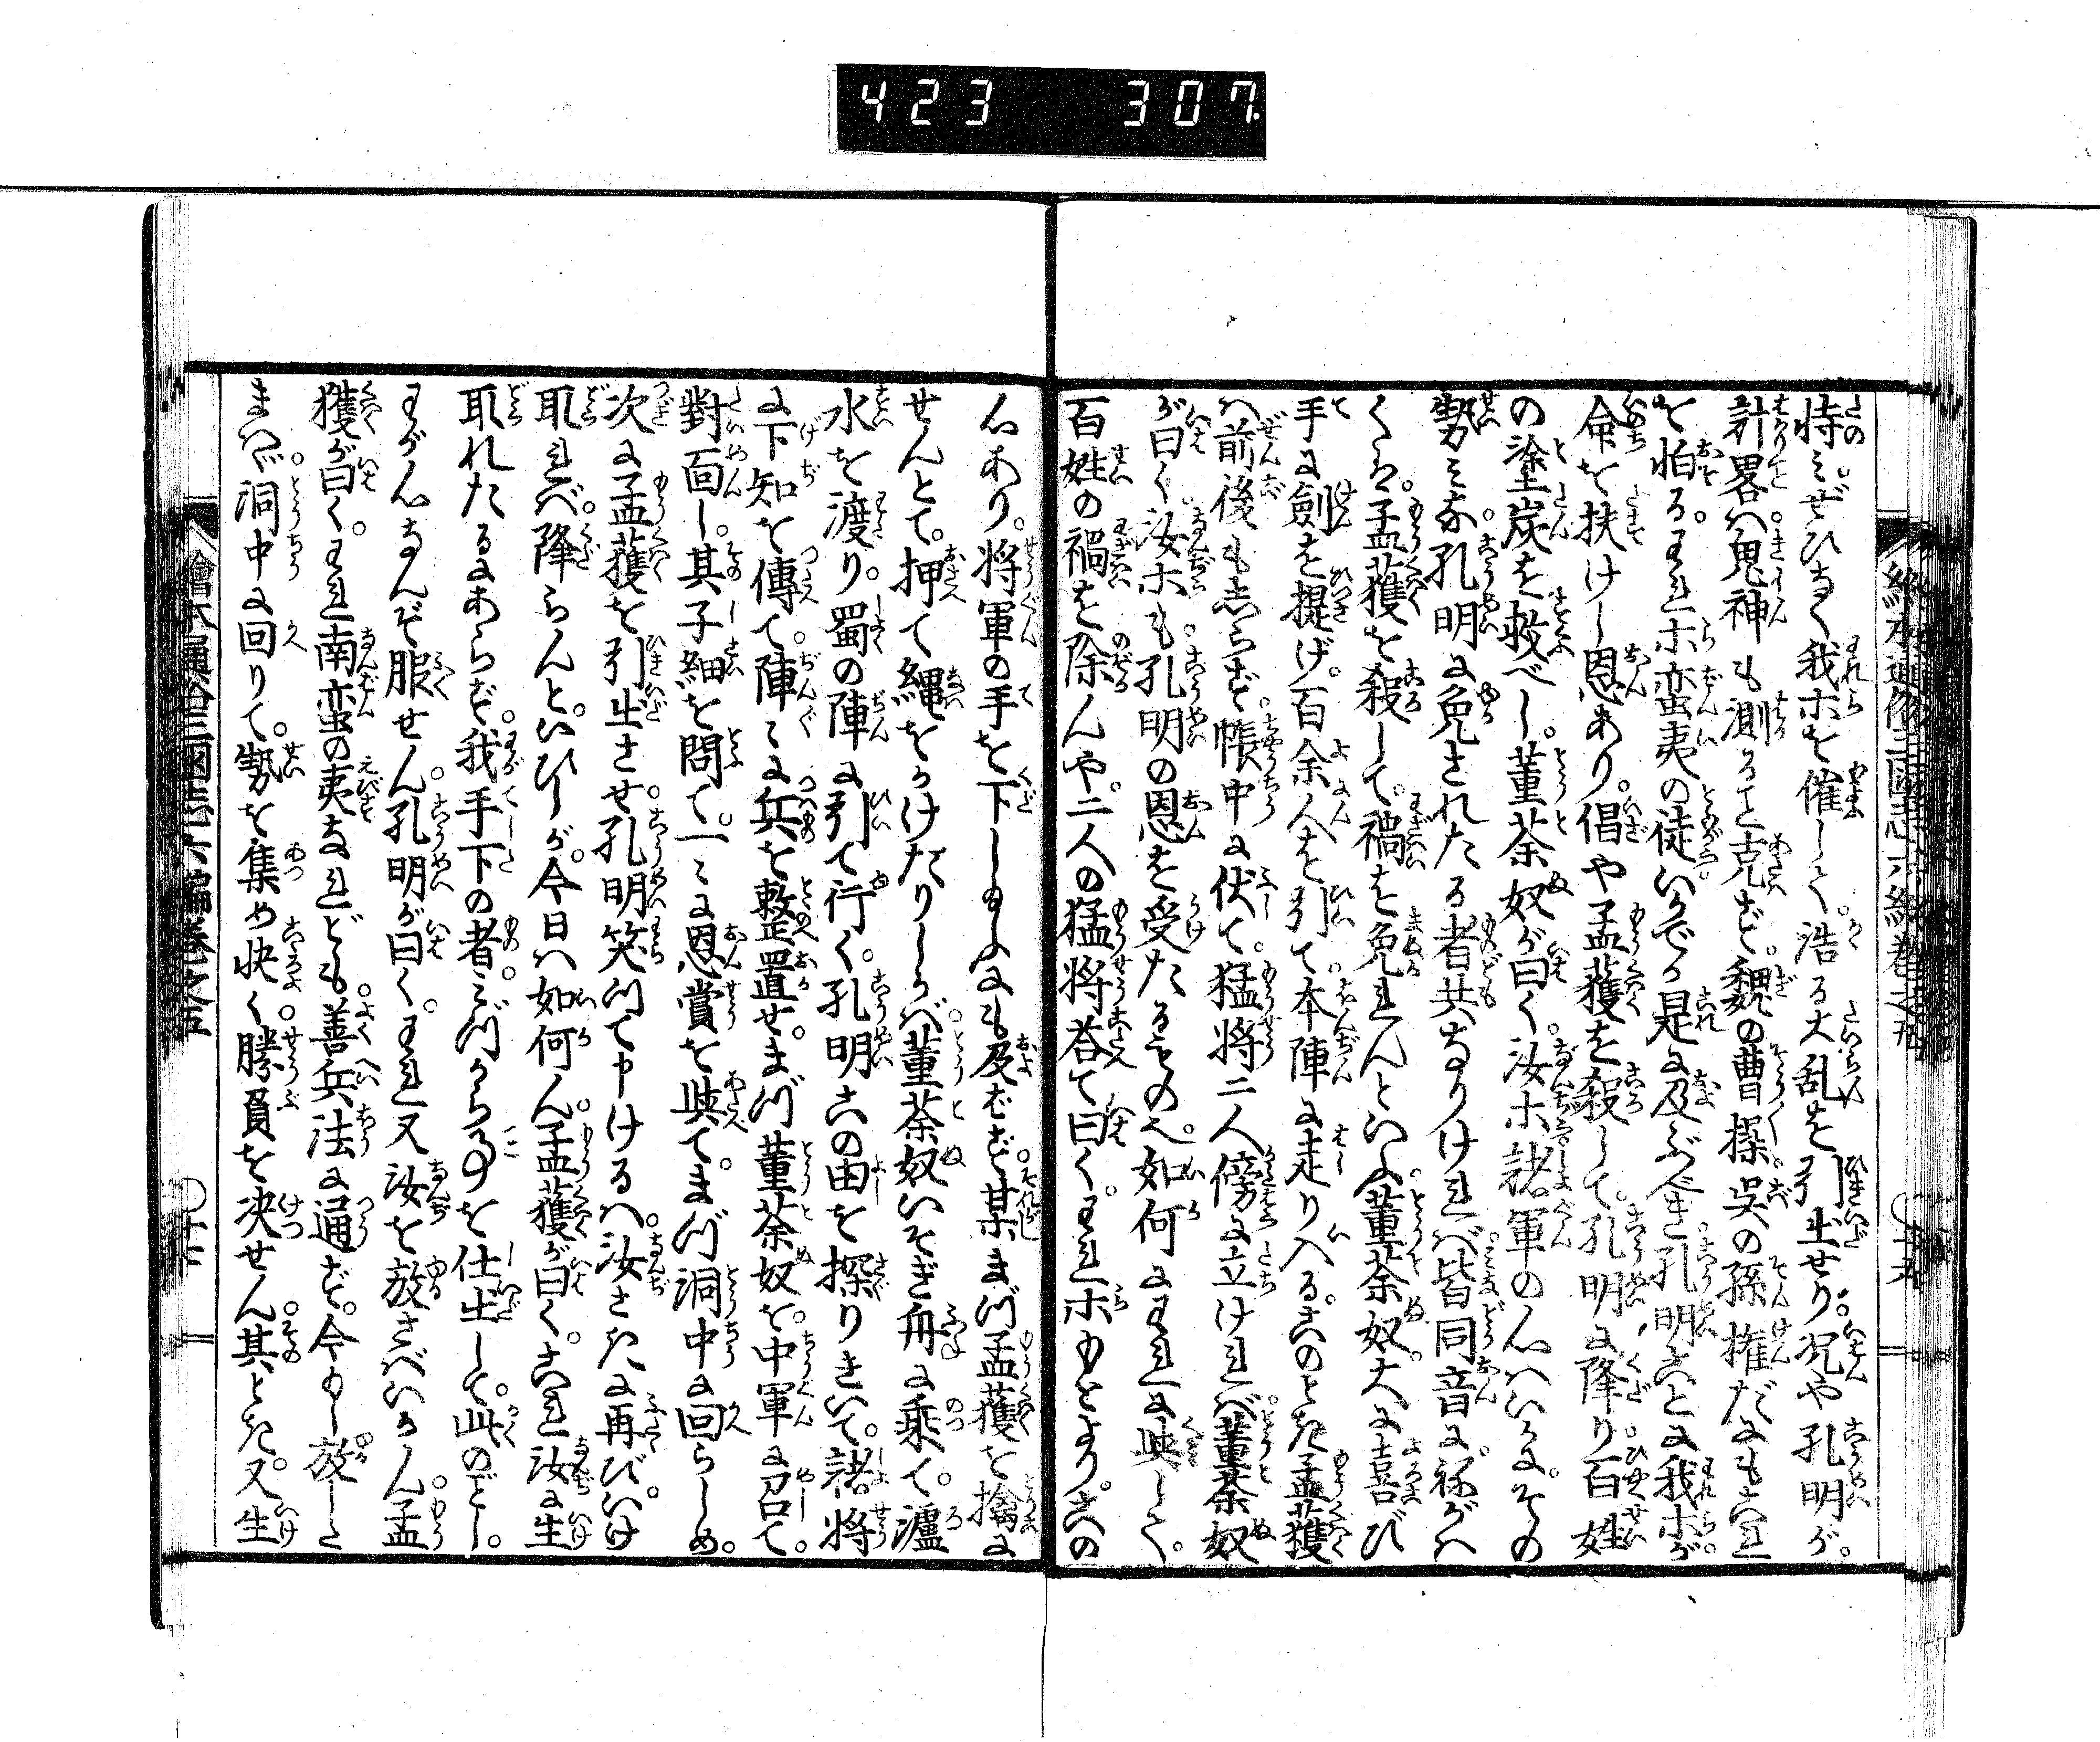 423 307
繪本通俗三國志六編卷之五
恃みぜひなく我ホを催して。浩る大乱を引出せり。况や孔明が。
計畧ハ鬼神も測ること克ず。魏の曹操。呉の孫権だにもこれ
を怕る。われホ蛮夷の徒いかでか是に及ぶべき孔明ことに我ホが
命を扶けし恩あり。倡や孟獲を殺して。孔明に降り。百姓
の塗炭を救べし。董荼奴が曰く。汝ホ諸軍の心ハいかに。その
勢みな孔明に免されたる者共なりけれバ皆同音に。ねがハ
くハ。孟獲を殺して。禍を免れんといふ。董荼奴大に喜び
手に劍を提げ。百余人を引て。本陣に走り入る。このとき孟獲
ハ前後もしらず。帳中に伏て。猛将二人傍に立けれバ。董荼奴
が曰く。汝ホも孔明の恩を受たるもの也。如何にわれに與して。
百姓の禍を除んや。二人の猛将荅て曰く。われホもとより。この
心あり。将軍の手を下し給ふにも及ばず。某まづ孟獲を擒に
せんとて。押て縄をかけたりしかバ。董荼奴いそぎ舟に乗て。瀘
水を渡り。蜀の陣に引て行く。孔明この由を探りきいて。諸将
に下知を傳て。陣〻に兵を整置せ。まづ董荼奴を。中軍に召て。
對面し。其子細を問て。一〻に恩賞を與て。まづ洞中に回らしめ。
次に孟獲を引出させ。孔明笑つて申けるハ。汝さきに再び。いけ
取れバ。降らんと。いひしが。今日ハ如何ん。孟獲が曰く。これ汝に生
取れたるにあらず。我手下の者。みづから事を仕出して。此のごとし。
わが心なんぞ服せん。孔明が曰く。われ又汝を放さバいかん。孟
獲が曰く。われ南蛮の夷なれども。善兵法に通ず。今もし放した
まハヾ。洞中に回りて。勢を集め快く。勝負を決せん。其とき。又生
繪本通俗三國志六編卷之五